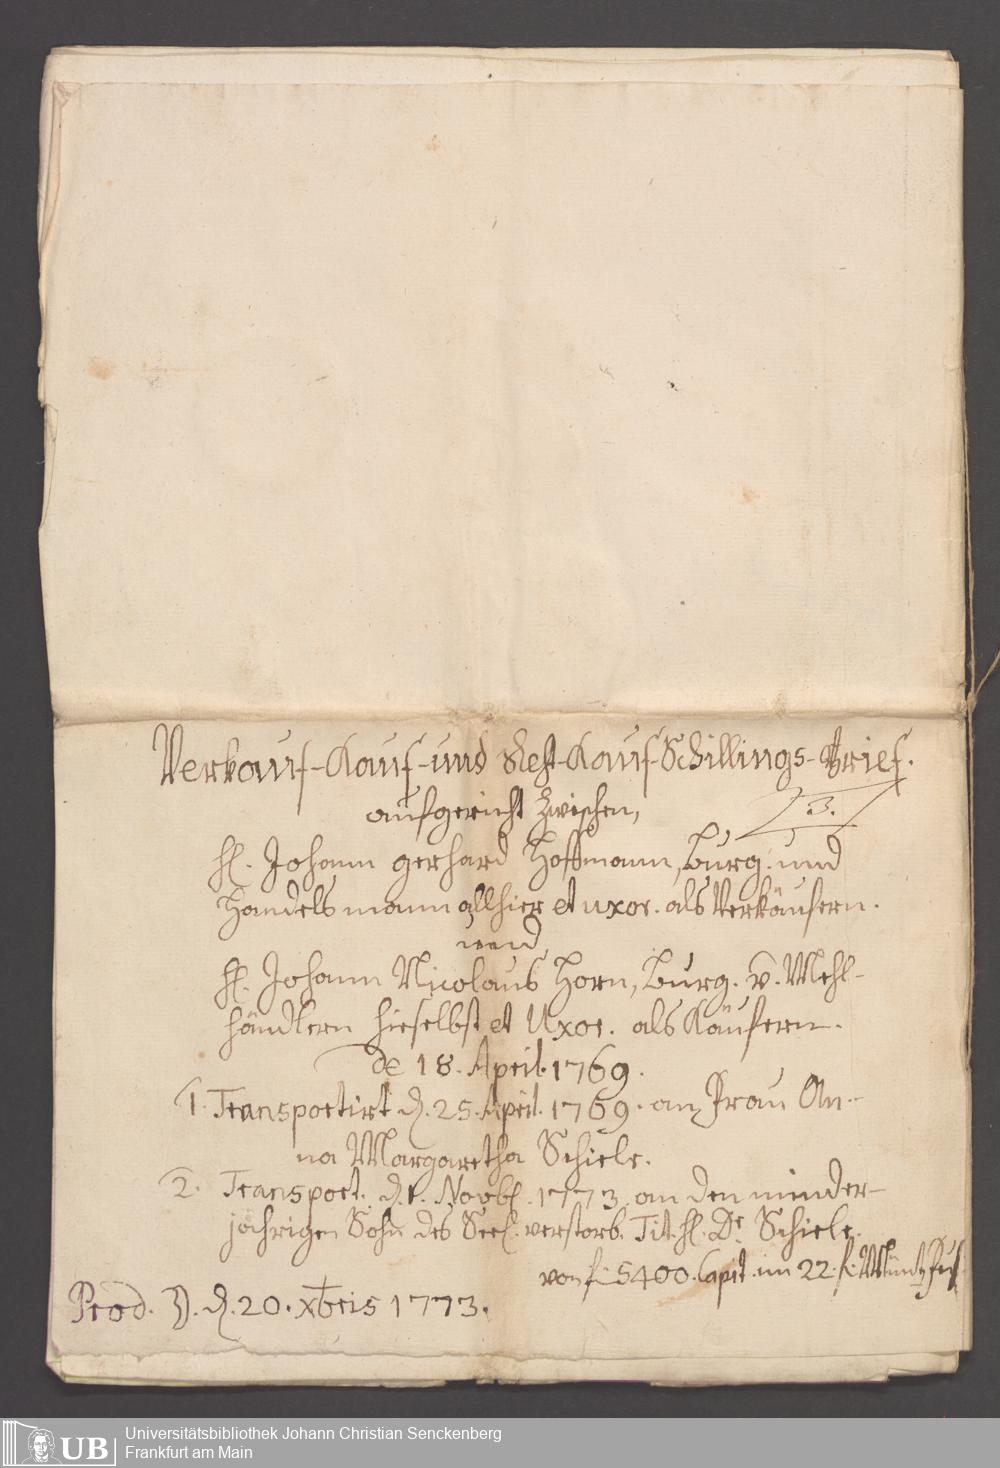 Verkauf-Kauf-und Rest-Kauf-Schillings-Brief.
aufgericht zwischen,
3.
H. Johann gerhard Hoffmann, Burg. und
Handelsmann allhier et uxor. als Verkäufern.
und
H. Johann Nicolaus Horn, Burg. v. Mehl-
händlern hieselbst et Uxor. als Käufern.
de 18. April. 1769.
1. Transportirt d. 25. April. 1769. an Frau An-
na Margaretha Schiele.
2. Transport. d. 1. Novbr. 1773. an den minder-
jährigen Sohn des Seel. verstorb. Tit. H. Dr. Schiele.
von f. 5400. Capit. im 22. f. Müntz Fuß
Prod. d. 20. Xbris 1773.
UB
Universitätsbibliothek Johann Christian Senckenberg
Frankfurt am Main